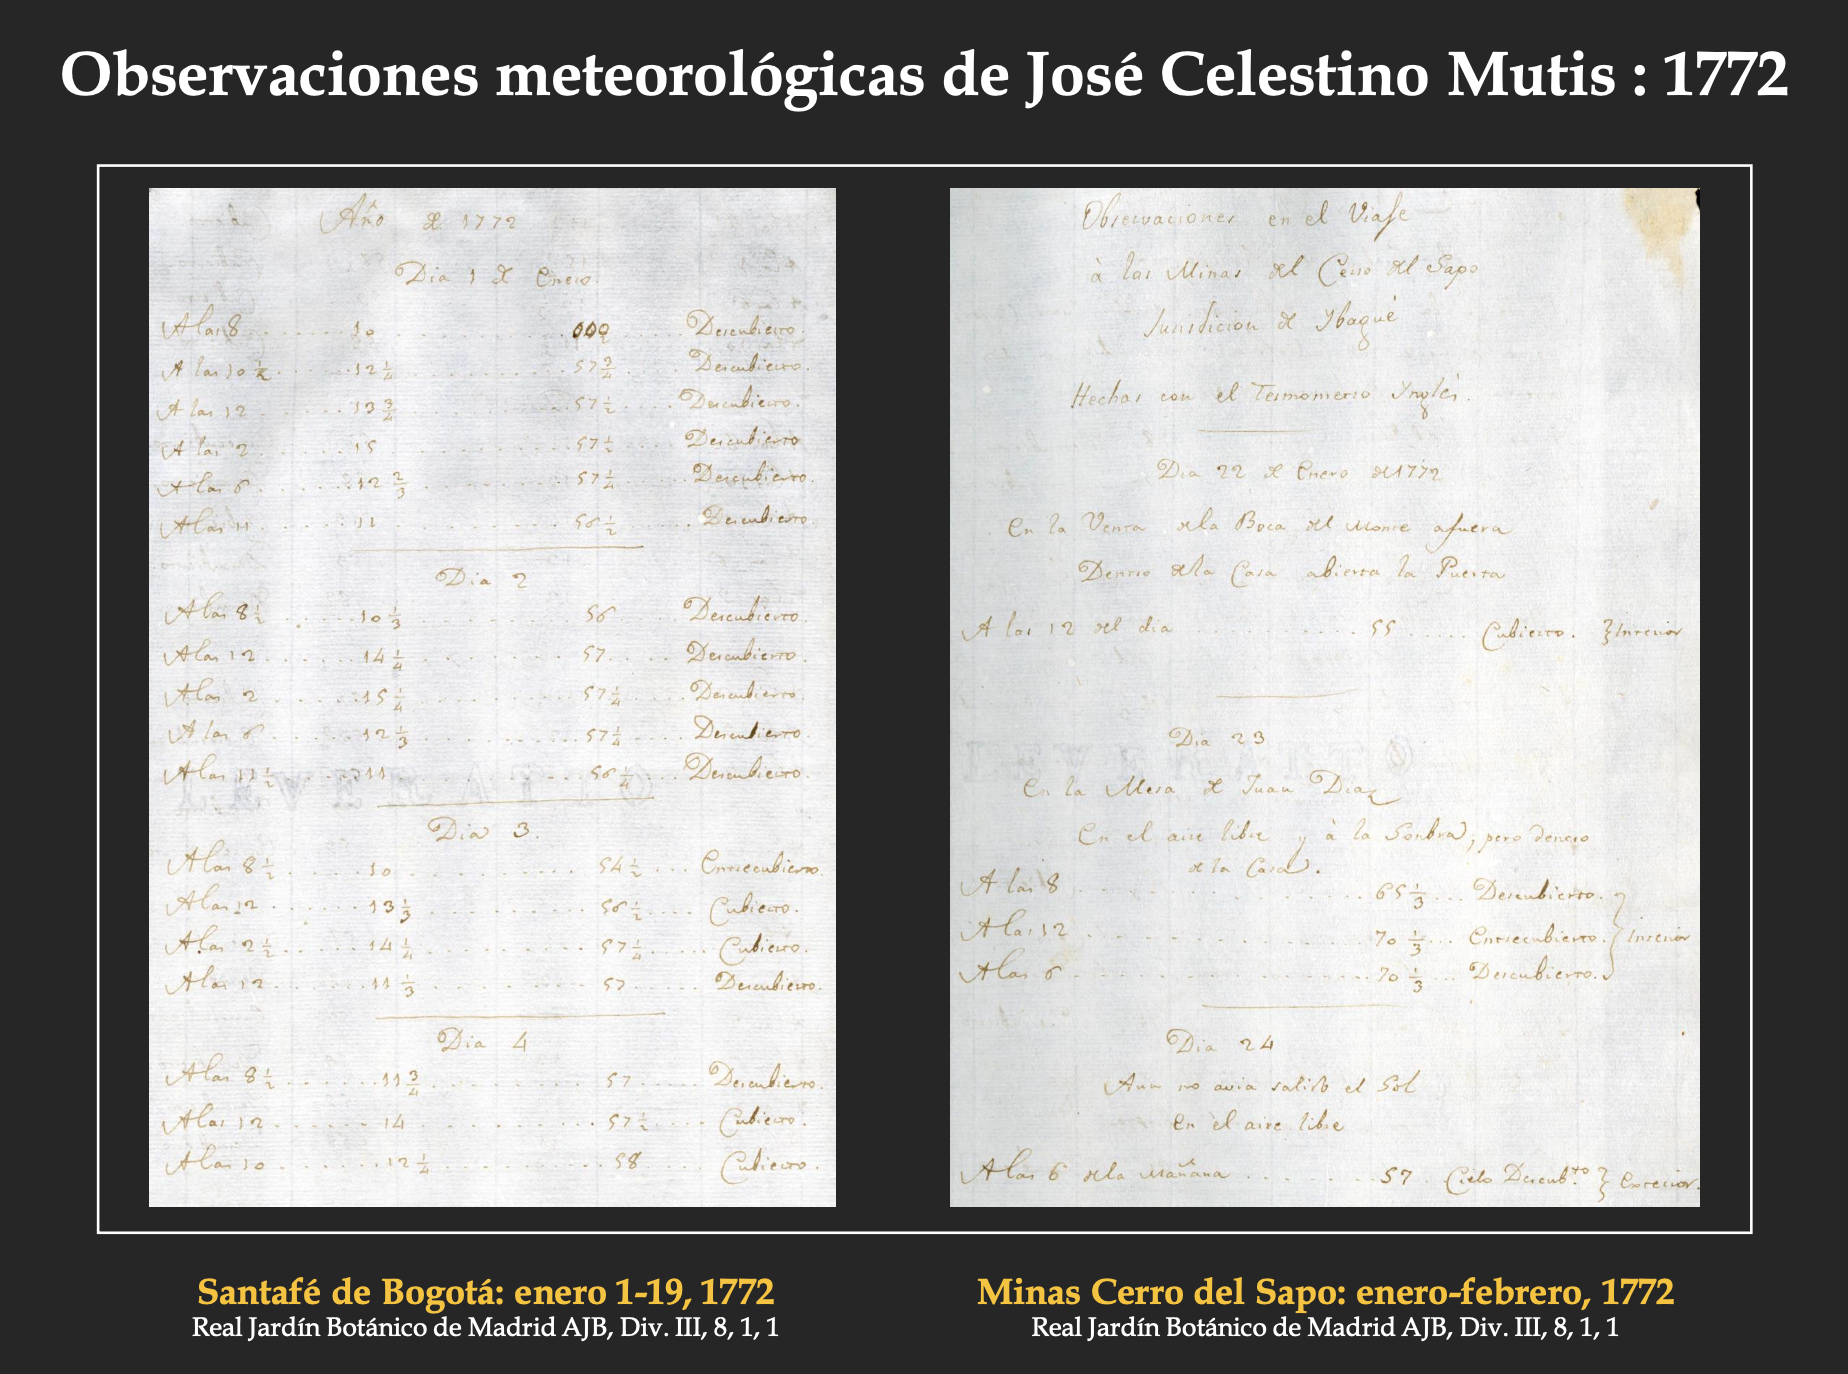 Observaciones meteorológicas de José Celestino Mutis : 1772
Año de 1772
Dia 1 de Enero.
A las 8 10 Descubierto.
A las 10 1/2 12 1/4 57 2/4 Descubierto.
A las 12 13 3/4 57 1/2 Descubierto.
A las 2 15 57 1/2 Descubierto
A las 6 12 2/3 57 1/4 Descubierto.
A las 11 11 56 1/2 Descubierto.
Dia 2
A las 8 1/2 10 1/3 56 Descubierto
A las 12 14 1/4 57 Descubierto.
A las 2 15 1/4 57 1/4 Descubierto.
A las 6 12 1/3 57 1/4 Descubierto.
A las 11 1/2 11 56 1/4 Descubierto.
Dia 3.
A las 8 1/2 10 54 1/2 Entrecubierto.
A las 12 13 1/3 56 1/2 Cubierto.
A las 2 1/2 14 1/4 57 1/4 Cubierto.
A las 12 11 1/3 57 Descubierto.
Dia 4
A las 8 1/2 11 3/4 57 Descubierto.
A las 12 14 57 1/2 Cubierto.
A las 10 12 1/4 58 Cubierto.
Observaciones en el Viaje
à las Minas del Cerro del Sapo
Jurisdicion de Ybaguè
Hechas con el Termometro Ynglès.
Dia 22 de Enero de 1772
En la Venta de la Boca del Monte afuera
Dentro de la Casa abierta la Puerta
A las 12 del dia 55 Cubierto. } Interior
Dia 23
En la Mesa de Juan Diaz
En el aire libre y à la Sonbra, pero dentro
de la Casa.
A las 8 65 1/3 Descubierto.
A las 12 70 1/3 Entrecubierto. } Interior
A las 6 70 1/3 Descubierto.
Dia 24
Aun no avia salido el Sol
En el aire libre
A las 6 de la Mañana 57 Cielo Descub.to } Exterior.
Santafé de Bogotá: enero 1-19, 1772
Real Jardín Botánico de Madrid AJB, Div. III, 8, 1, 1
Minas Cerro del Sapo: enero-febrero, 1772
Real Jardín Botánico de Madrid AJB, Div. III, 8, 1, 1